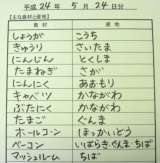 平成 24年 5月 24日分
【主な食材と産地】
食材 産地
しょうが こうち
きゅうり さいたま
にんじん とくしま
たまねぎ さが
にんにく あおもり
キャベツ かながわ
ぶたにく かながわ
たまご ぐんま
ホールコーン ほっかいどう
ベーコン いばらき ぐんま ちば
マッシュルーム ちば